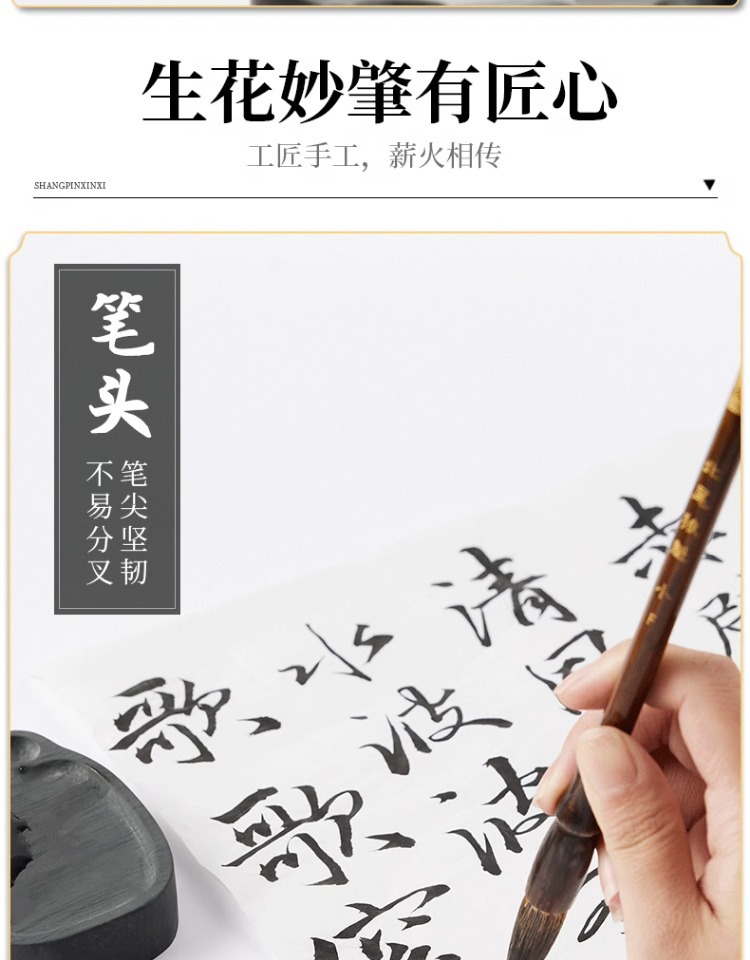 生花妙肇有匠心
工匠手工，薪火相传
SHANGPINXINXI
笔头
笔尖坚韧
不易分叉
清
歌 水
波
歌 波